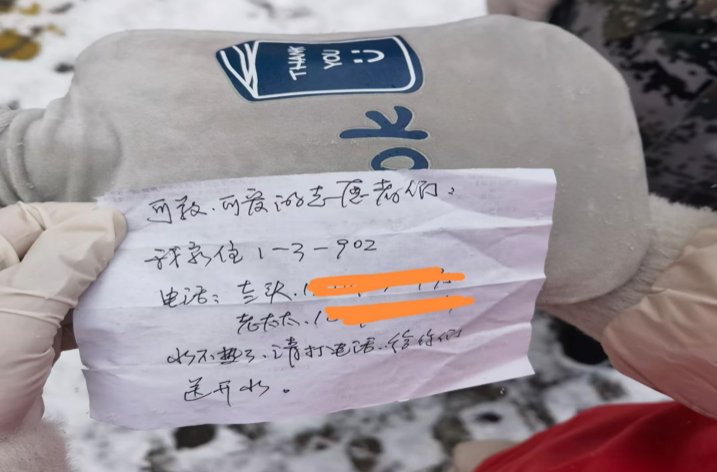 THANK
YOU
ok
可敬、可爱的志愿者们：
我家住1-3-902
电话：老头、1
老太太、1
水不热了、请打电话、给你们
送开水。